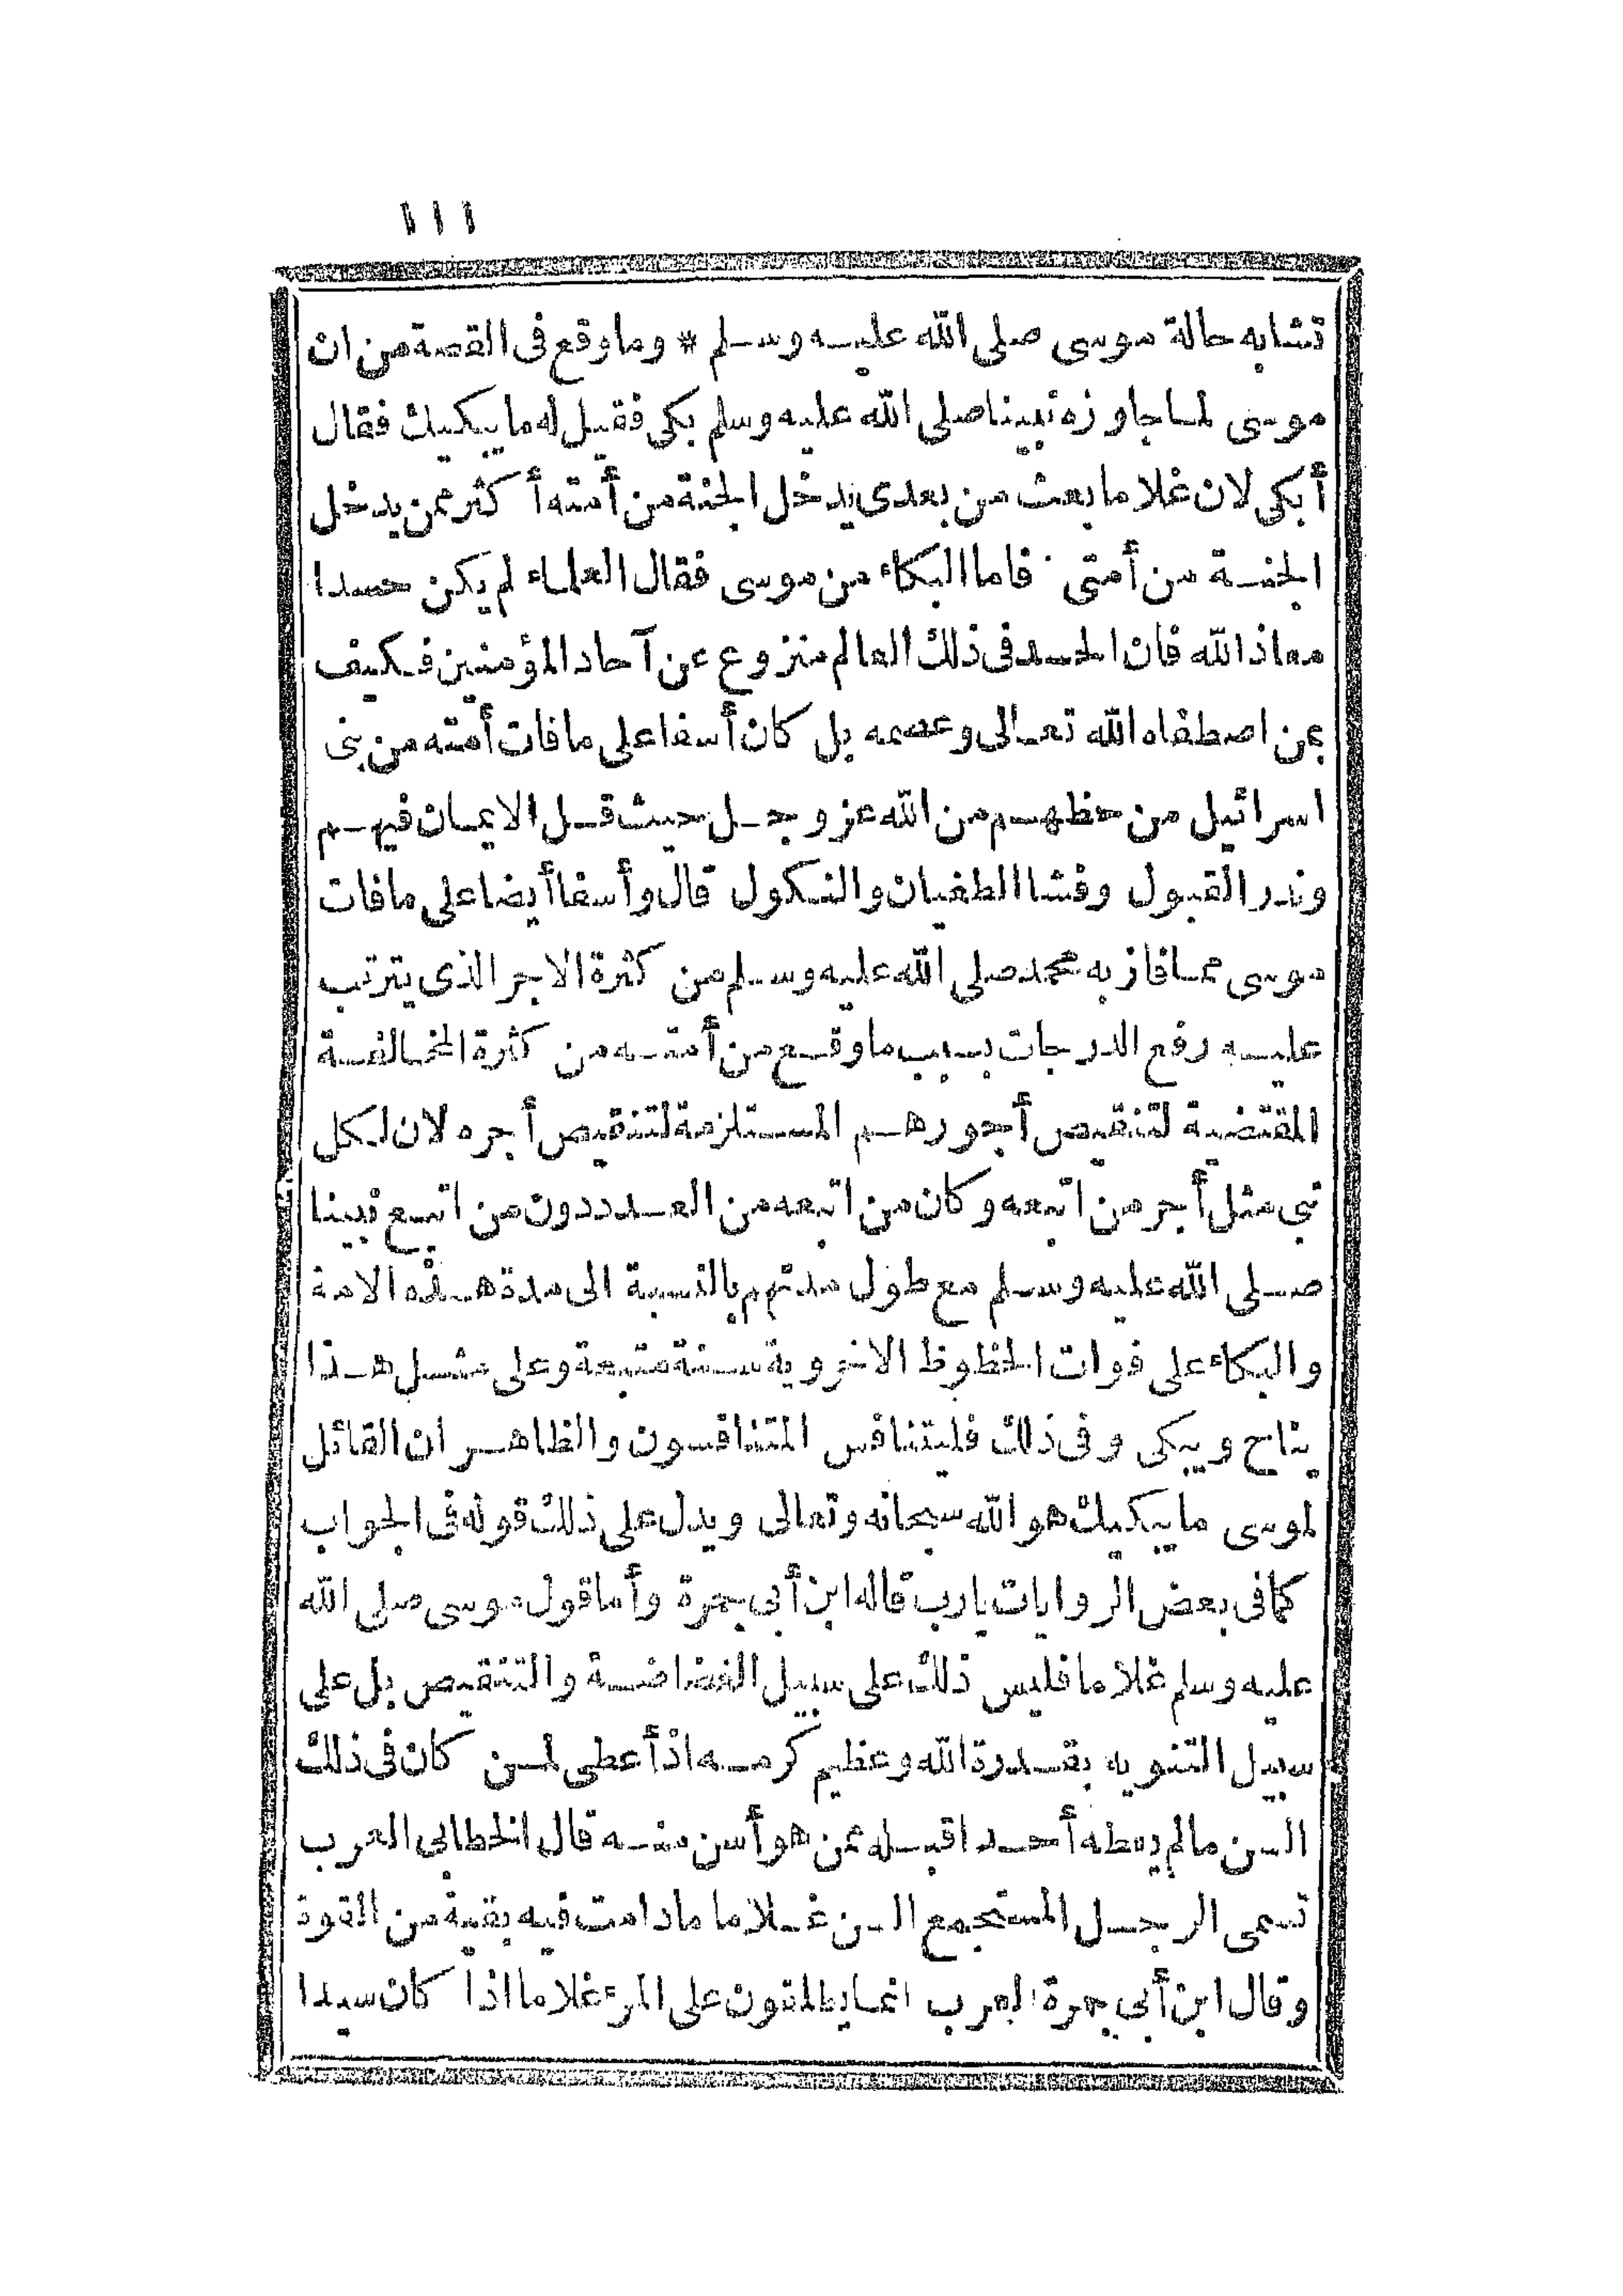 ١١١
تشابه حالة موسى صلى الله عليه وسلم * وما وقع فى القصة من ان
موسى لما جاوزه نبينا صلى الله عليه وسلم بكى فقيل له ما يبكيك فقال
أبكى لان غلاما بعث من بعدى يدخل الجنة من أمته أكثر ممن يدخل
الجنة من أمتى فاما البكاء من موسى فقال العلماء لم يكن حسدا
معاذ الله فان الحسد فى ذلك العالم منزوع عن آحاد المؤمنين فكيف
بمن اصطفاه الله تعالى وعصمه بل كان أسفا على ما فات أمته من بنى
اسرائيل من حظهم من الله عز وجل حيث قل الايمان فيهم
وندر القبول وفشا الطغيان والنكول قال وأسفا أيضا على ما فات
موسى مما فاز به محمد صلى الله عليه وسلم من كثرة الاجر الذى يترتب
عليه رفع الدرجات بسبب ما وقع من أمته من كثرة المخالفة
المقتضية لتنقيص أجورهم المستلزمة لتنقيص أجره لان لكل
نبى مثل أجر من اتبعه وكان من اتبعه من العدد دون من اتبع نبينا
صلى الله عليه وسلم مع طول مدتهم بالنسبة الى مدة هذه الامة
والبكاء على فوات الحظوظ الاخروية سنة متبعة وعلى مثل هذا
يناح ويبكى وفى ذلك فليتنافس المتنافسون والظاهر ان القائل
لموسى ما يبكيك هو الله سبحانه وتعالى ويدل على ذلك قوله فى الجواب
كما فى بعض الروايات يا رب قاله ابن أبى جمرة وأما قول موسى صلى الله
عليه وسلم غلاما فليس ذلك على سبيل الغضاضة والتنقيص بل على
سبيل التنويه بقدرة الله وعظيم كرمه اذ أعطى لمن كان فى ذلك
السن ما لم يعطه أحدا قبله ممن هو أسن منه قال الخطابى العرب
تسمى الرجل المستجمع السن غلاما ما دامت فيه بقية من القوة
وقال ابن أبى جمرة العرب انما يطلقون على المرء غلاما اذا كان سيدا